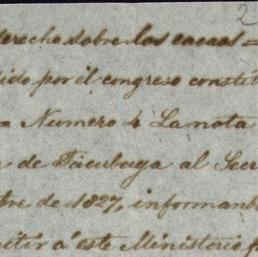 2
derecho sobre los cacaos =
dido por el congreso constit
= Numero 4 La nota
de Tacubaya al Secr
bre de 1827, informan
mitir a este Ministerio